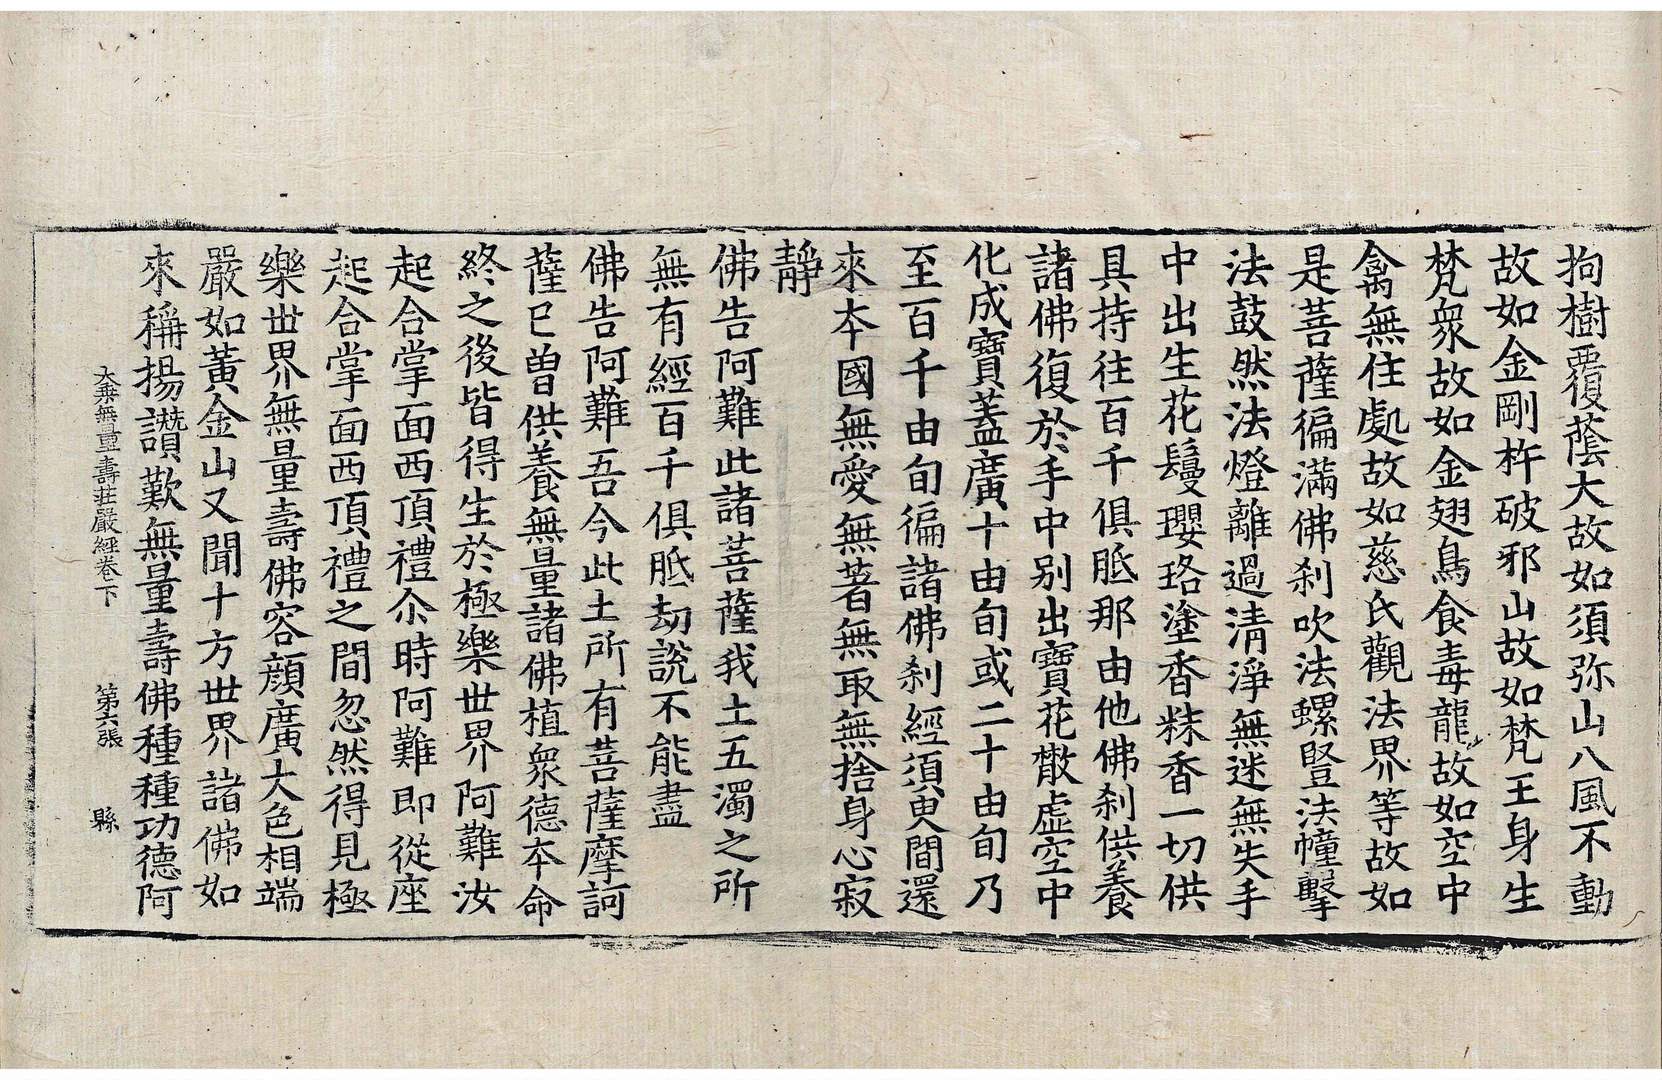 拘樹覆蔭大故如須弥山八風不動
故如金剛杵破邪山故如梵王身生
梵衆故如金翅鳥食毒龍故如空中
禽無住處故如慈氏觀法界等故如
是菩薩徧滿佛刹吹法螺豎法幢擊
法鼓然法燈離過清淨無迷無失手
中出生花鬘瓔珞塗香粖香一切供
具持往百千俱胝那由他佛刹供養
諸佛復於手中别出寶花散虛空中
化成寶蓋廣十由旬或二十由旬乃
至百千由旬徧諸佛刹經須臾間還
來本國無愛無著無取無捨身心寂
靜
佛告阿難此諸菩薩我土五濁之所
無有經百千俱胝劫說不能盡
佛告阿難吾今此土所有菩薩摩訶
薩已曽供養無量諸佛植衆德本命
終之後皆得生於極樂世界阿難汝
起合掌面西頂禮尒時阿難即從座
起合掌面西頂禮之間忽然得見極
樂世界無量壽佛容顏廣大色相端
嚴如黃金山又聞十方世界諸佛如
來稱揚讚歎無量壽佛種種功德阿
大乗無量壽莊嚴經卷下 第六張 縣